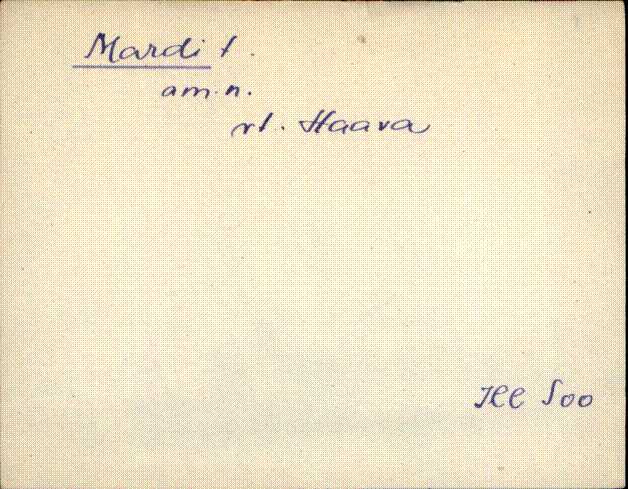 Mardi t.
am. n.
vt. Haava
Ill Soo